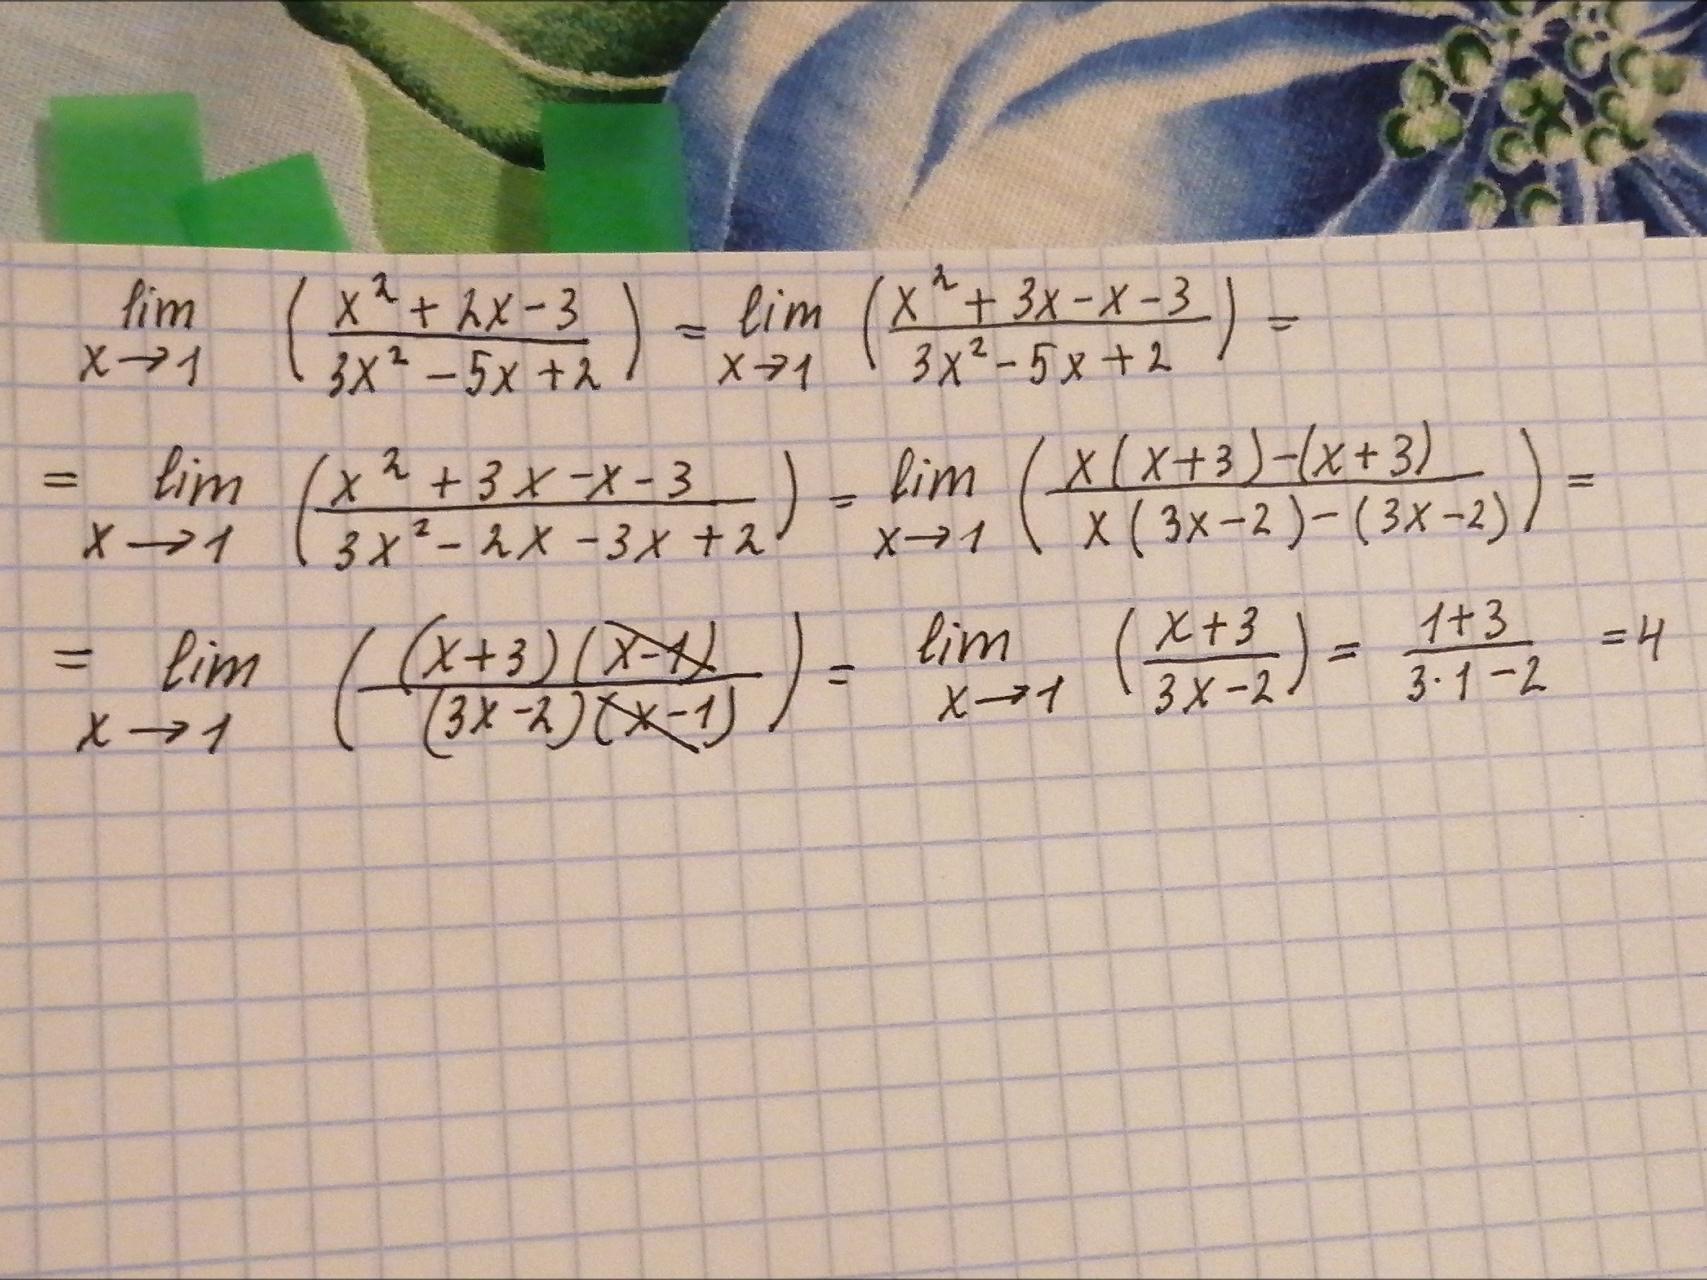 lim x→1 ( (x² + 2x - 3) / (3x² - 5x + 2) ) = lim x→1 ( (x² + 3x - x - 3) / (3x² - 5x + 2) ) =
= lim x→1 ( (x² + 3x - x - 3) / (3x² - 2x - 3x + 2) ) = lim x→1 ( (x(x+3) - (x+3)) / (x(3x-2) - (3x-2)) ) =
= lim x→1 ( ((x+3)(x-1)) / ((3x-2)(x-1)) ) = lim x→1 ( (x+3) / (3x-2) ) = (1+3) / (3·1-2) = 4